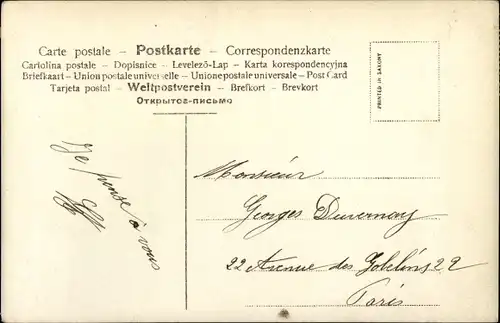 Carte postale – Postkarte – Correspondenzkarte
Cartolina postale – Dopisnice – Levelező-Lap – Karta korespondencyjna
Briefkaart – Union postale universelle – Unione postale universale – Post Card
Tarjeta postal – Weltpostverein – Brefkort – Brevkort
Открытое-письмо
PRINTED IN SAXONY
Je pense à vous
Monsieur
Georges Duvernoy
22 Avenue des Gobelins 22
Paris